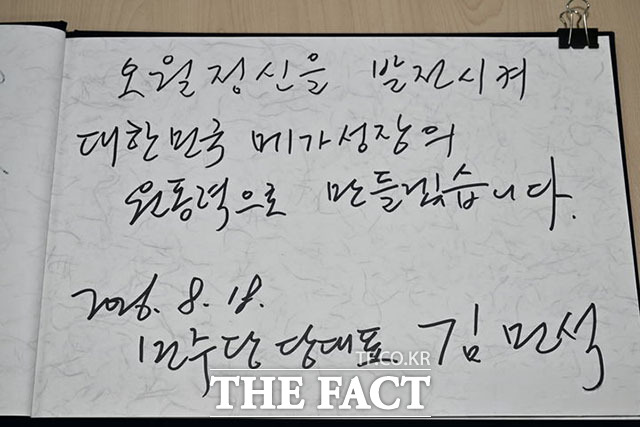 오월정신을 발전시켜
대한민국 메가성장의
원동력으로 만들겠습니다.
2026. 8. 18.
민주당 당대표 김민석
TF.CO.KR
THE FACT